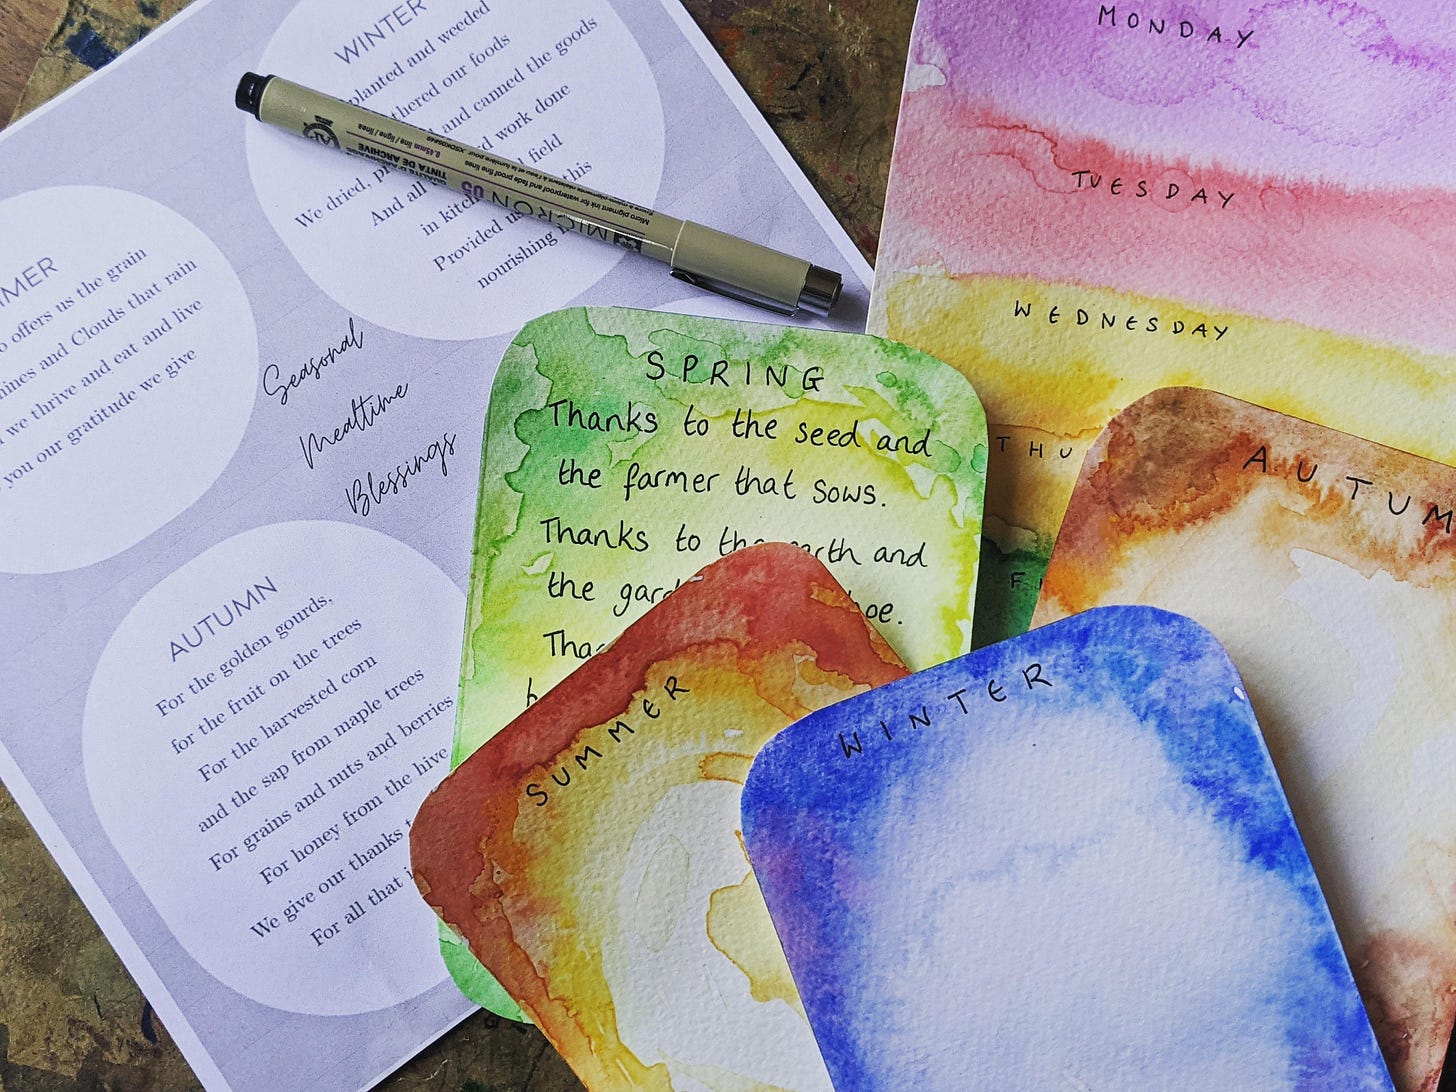 WINTER
planted and weeded
thered our foods
and canned the goods
We dried,
And all
d work done
in
field
Provided
this
nourishing
MICRON 05
0.45mm line / ligne / línea
TINTA DE ARCHIVE
Micro pigment ink for waterproof and fade proof fine lines
MER
offers us the grain
and Clouds that rain
we thrive and eat and live
you our gratitude we give
Seasonal
Mealtime
Blessings
AUTUMN
For the golden gourds,
for the fruit on the trees
For the harvested corn
and the sap from maple trees
For grains and nuts and berries
For honey from the hive
We give our thanks
For all that
SPRING
Thanks to the seed and
the farmer that sows.
Thanks to the earth and
the gar
hoe.
Tha
SUMMER
WINTER
AUTUM
MONDAY
TUESDAY
WEDNESDAY
THU
F